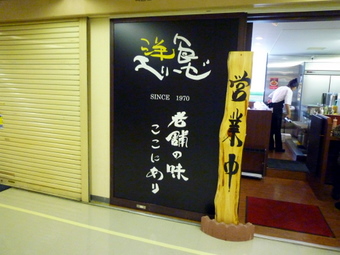 洋
SINCE 1970
老舗の味
ここにあり
営業中